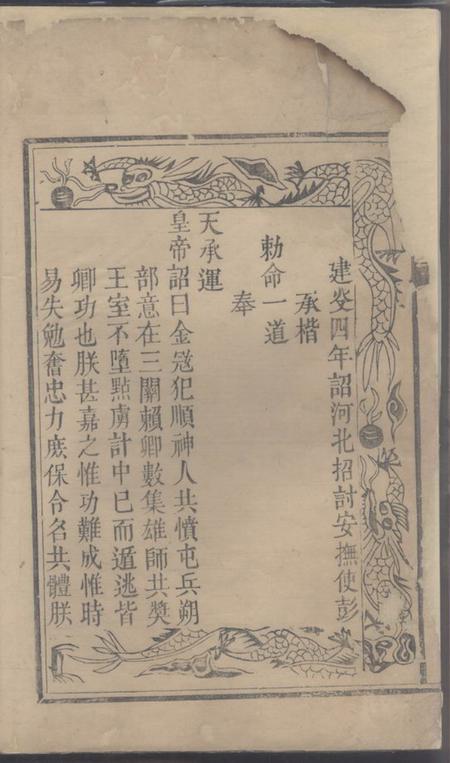 建炎四年詔河北招討安撫使彭
承楷
勅命一道
奉
天承運
皇帝詔曰金寇犯順神人共憤屯兵朔
部意在三關賴卿數集雄師共奬
王室不墮黠虜計中巳而遁逃皆
卿功也朕甚嘉之惟功難成惟時
易失勉奮忠力庶保令名共體朕